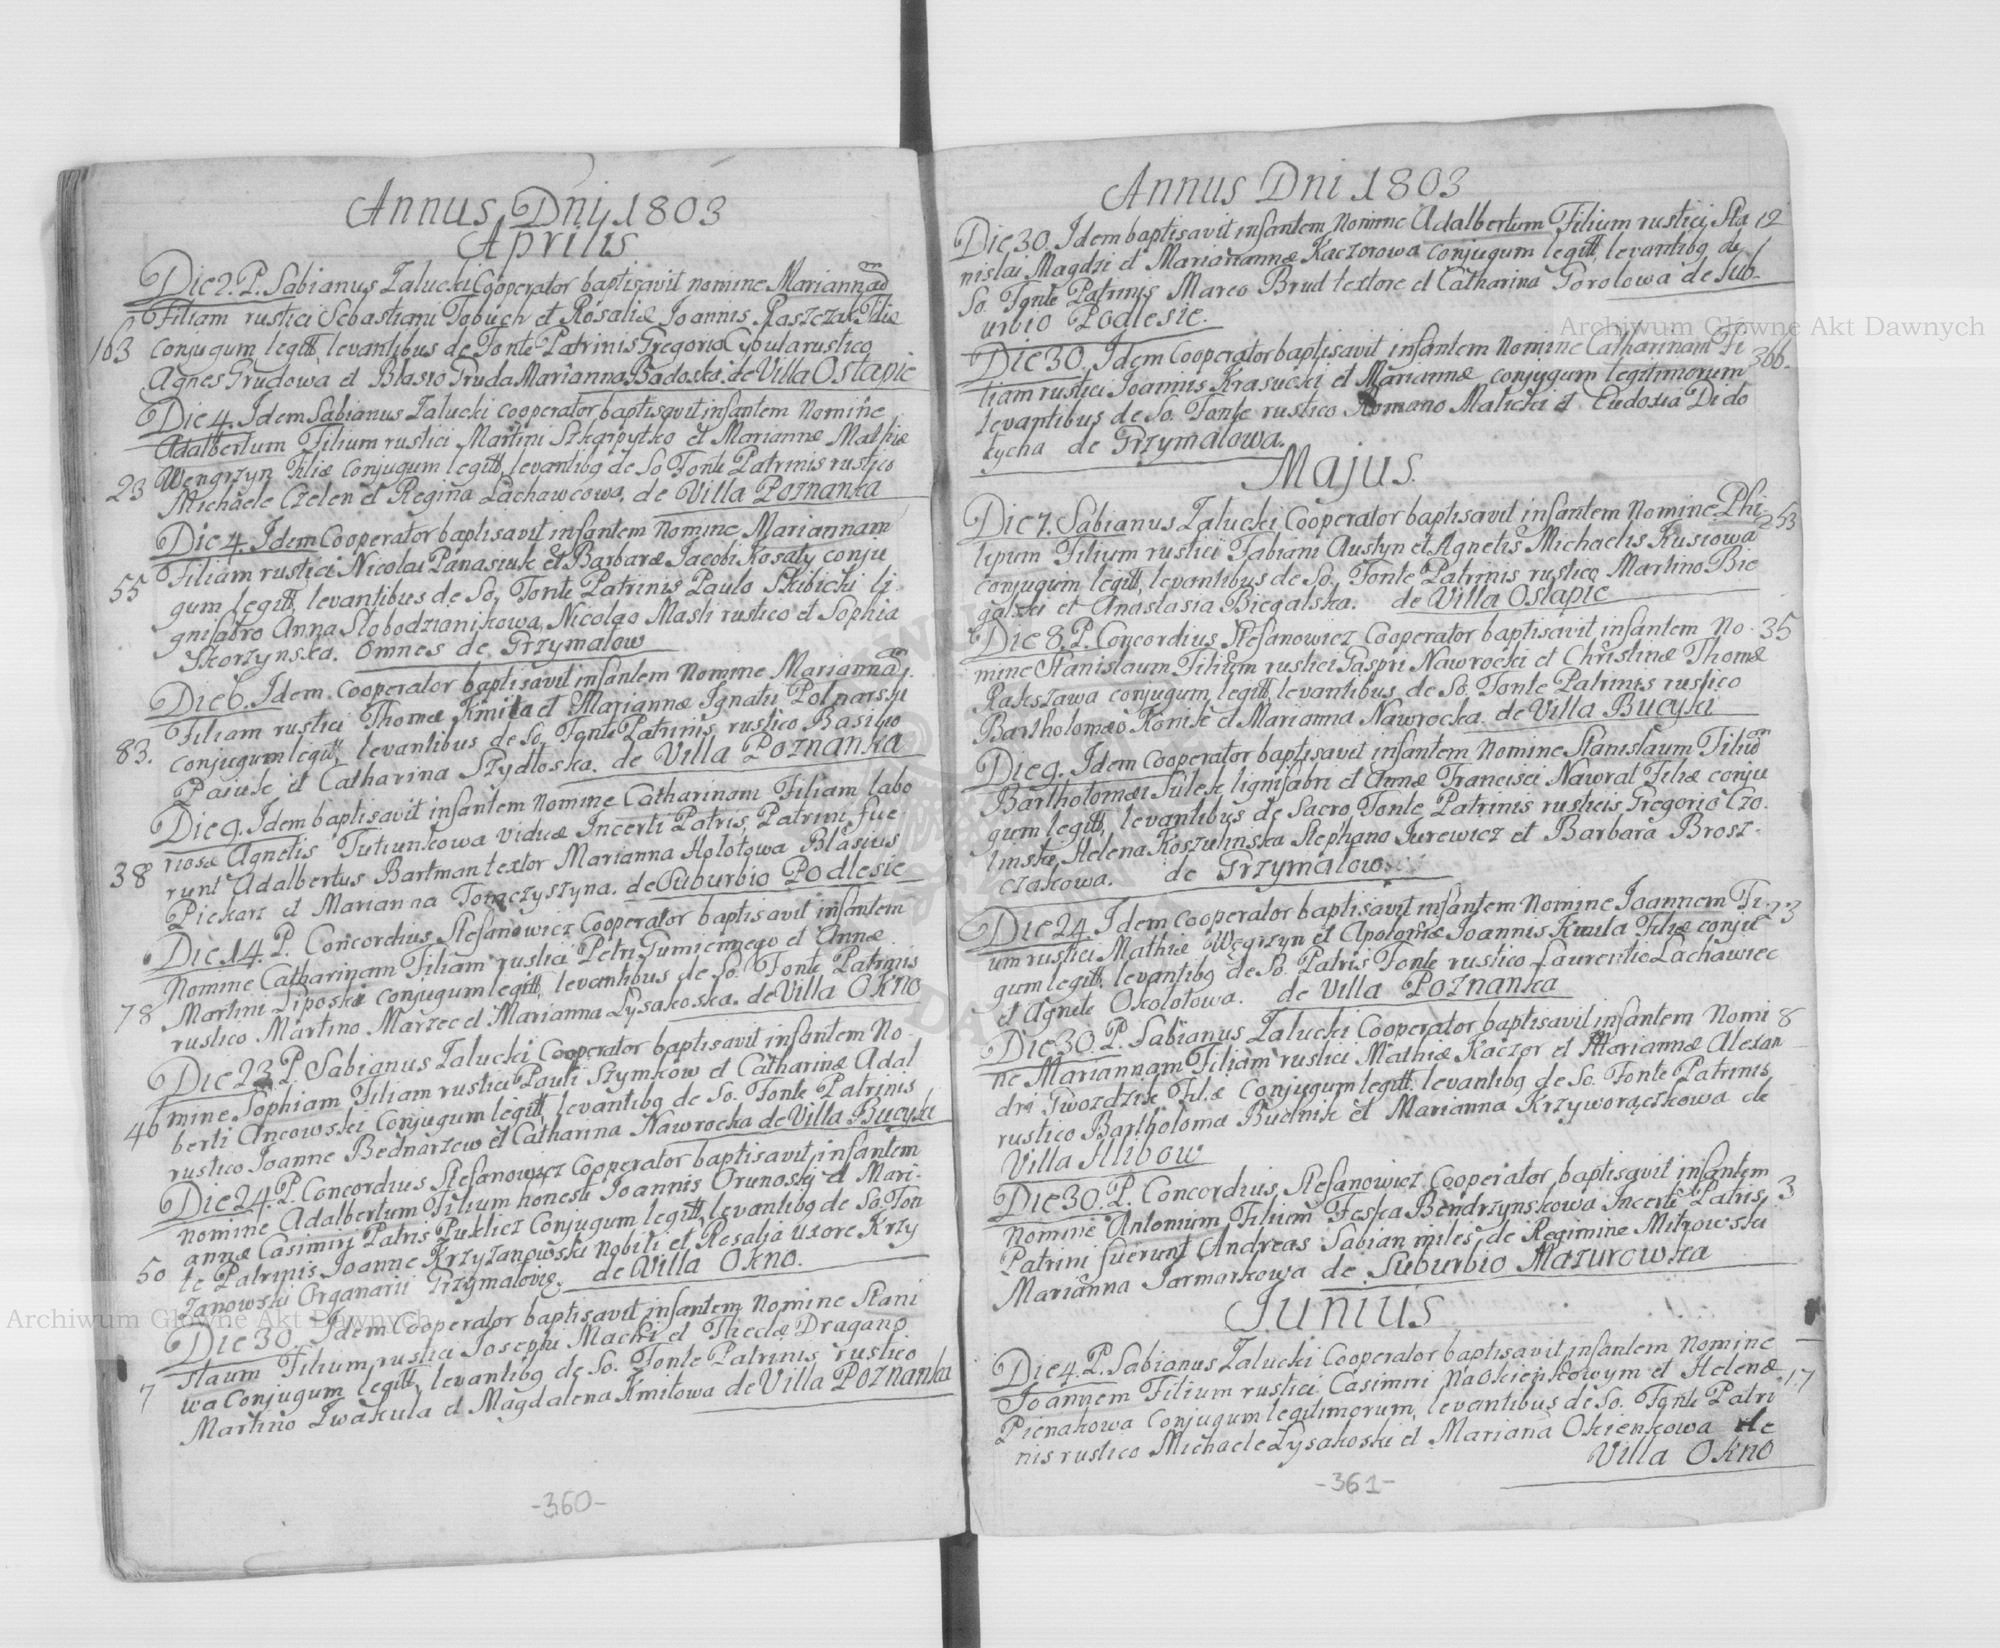 Annus Dni 1803
Aprilis
Die 2. P. Sabianus Zalucki Cooperator baptisavit nomine Mariannam
Filiam rustici Sebastiani Tobuch et Rosaliæ Joannis Raszczuk Filiæ
163 conjugum legitt, levantibus de Fonte Patrinis Gregorio Cybula rustico
Agnes Grudowa et Blasio Gruda Marianna Badoska. de Villa Ostapie
Die 4. Idem Sabianus Zalucki cooperator baptisavit infantem Nomine
Adalbertum Filium rustici Martini Szkarpytko et Mariannæ Mathiæ
23 Wengrzyn Filiæ conjugum legitt, levantibg de So Fonte Patrinis rustico
Michaele Czelen et Regina Lachawcowa. de Villa Poznanka
Die 4. Idem Cooperator baptisavit infantem Nomine Mariannam
Filiam rustici Nicolai Panasiuk et Barbaræ Jacobi Kosaty conju
55 gum legitt, levantibus de So, Fonte Patrinis Paulo Skibicki li
gnifabro Anna Slobodzianikowa, Nicolao Masli rustico et Sophia
Skorzynska. Omnes de Grzymalow
Die 6. Idem Cooperator baptisavit infantem Nomine Mariannam
Filiam rustici Thomæ Kmita et Mariannæ Ignatii Polnarski
83. conjugum legitt, levantibus de So, Fonte Patrinis rustico Basilio
Paiuk et Catharina Szydloska. de Villa Poznanka
Die 9. Idem baptisavit infantem nomine Catharinam Filiam labo
riosæ Agnetis Tutiunkowa viduæ Incerti Patris, Patrini fue
38 runt Adalbertus Bartman textor Marianna Holotowa Blasius
Piekarz et Marianna Tomczyszyna. de Suburbio Podlesie
Die 14. P. Concordius Stefanowicz Cooperator baptisavit infantem
Nomine Catharinam Filiam rustici Petri Gumiennego et Annæ
78 Martini Liposka conjugum legitt, levantibus de So. Fonte Patrinis
rustico Martino Marzec et Marianna Lysakoska. de Villa Okno
Die 23 P. Sabianus Zalucki Cooperator baptisavit infantem No.
mine Sophiam Filiam rustici Pauli Szymkow et Catharinæ Adal
46 berti Ancowski Conjugum legitt, levantibg de So. Fonte Patrinis
rustico Joanne Bednarzew et Catharina Nawrocka de Villa Bucyki
Die 24. P. Concordius Stefanowicz Cooperator baptisavit infantem
nomine Adalbertum Filium honesti Joannis Orunoski et Mari-
annæ Casimiri Patris Puklicz Conjugum legitt, levantibg de So. Fon
50 te Patrinis, Joanne Krzyzanowski nobili et Rosalia uxore Krzy
zanowski Organarii Grzymalovie. de Villa Okno.
Die 30. Idem Cooperator baptisavit infantem Nomine Stani
slaum Filium rustici Josephi Macki et Theclæ Dragano
7 wa Conjugum legitt, levantibg de So. Fonte Patrinis rustico
Martino Iwakula et Magdalena Kmitowa de Villa Poznanka
-360-
Annus Dni 1803
Die 30. Idem baptisavit infantem Nomine Adalbertum Filium rustici Sta 12
nislai Magdzi et Mariariannæ Kaczorowa conjugum legitt, levantibg de
So. Fonte Patrinis Marco Brud textore et Catharina Gorolowa de Sub-
urbio Podlesie.
Die 30. Idem Cooperator baptisavit infantem Nomine Catharinam Fi
liam rustici Joannis Krasucki et Mariannæ conjugum legitimorum 366.
levantibus de So. Fonte rustico Romano Malicki et Eudoxia Dido
tycha de Grzymalowa.
Majus.
Die 7. Sabianus Zalucki Cooperator baptisavit infantem Nomine Phi- 253
lipum Filium rustici Fabiani Austyn et Agnetis Michaelis Kusiowa
conjugum legitt, levantibus de So, Fonte Patrinis rustico Martino Bie
galski et Anastasia Biegalska. de Villa Ostapie
Die 8. P. Concordius Stefanowicz Cooperator baptisavit infantem No- 35
mine Stanislaum Filium rustici Gaspri Nawrocki et Christinæ Thomæ
Rakszawa conjugum legitt, levantibus de So. Fonte Patrinis rustico
Bartholomæo Konik et Marianna Nawrocka. de Villa Bucyki
Die 9. Idem Cooperator baptisavit infantem Nomine Stanislaum Filium
Bartholomæi Sulek lignifabri et Annæ Francisci Nawrat Filiæ conju
gum legitt, levantibus de Sacro Fonte Patrinis rusticis Gregorio Czo.
linski, Helena Koszulinska Stephano Jurewicz et Barbara Brosz-
czakowa. de Grzymalow
Die 24 Idem cooperator baptisavit infantem Nomine Joannem Fi. 23
um rustici Mathiæ Węgrzyn et Apoloniæ Joannis Kmila Filiæ conju
gum legitt, levantibg de So. Patris Fonte rustico Laurentio Lachawiec
et Agnete Okolotowa. de Villa Poznanka
Die 30. P. Sabianus Zalucki Cooperator baptisavit infantem Nomi 8
ne Mariannam Filiam rustici Mathiæ Kaczor et Mariannæ Alexan
dri Gwozdzik Filiæ Conjugum legitt, levantibg de So. Fonte Patrinis
rustico Bartholoma Budnik et Marianna Krzyworączkowa de
Villa Hlibow
Die 30. P. Concordius Stefanowicz Cooperator baptisavit infantem
Nomine Antonium Filium Feska Bendrzynskowa Incerti Patris, 3
Patrini fuerunt Andreas Sabian miles de Regimine Mitrowski
Marianna Jarmarkowa de Suburbio Mazurowka
Junius
Die 4. P. Sabianus Zalucki Cooperator baptisavit infantem Nomine
Joannem Filium rustici Casimiri Naokienkowym et Helenæ 17
Pienakowa Conjugum legitimorum, levantibus de So. Fonte Patri
nis rustico Michaele Lysakoski et Mariana Okienkowa de
Villa Okno
-361-
Archiwum Główne Akt Dawnych
Archiwum Główne Akt Dawnych